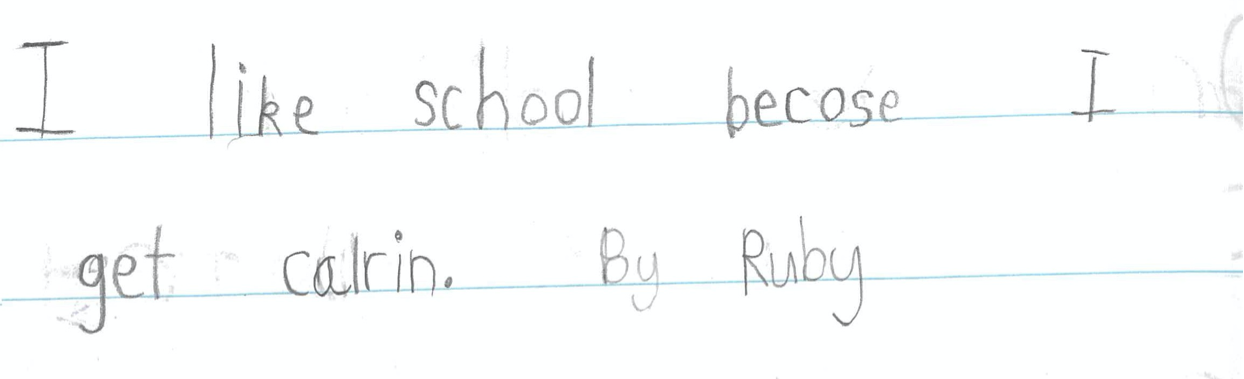 I like school becose I
get calrin. By Ruby